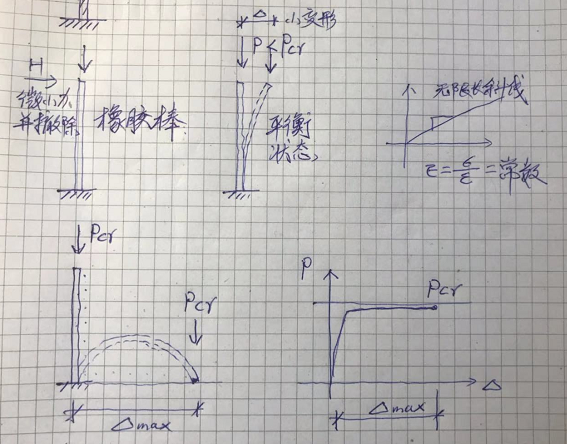 Δ 小变形
P < Pcr
H
微小力
并撤除
橡胶棒
平衡
状态
无限长斜线
E = σ/ε = 常数
Pcr
Pcr
Δmax
P
Pcr
Δ
Δmax